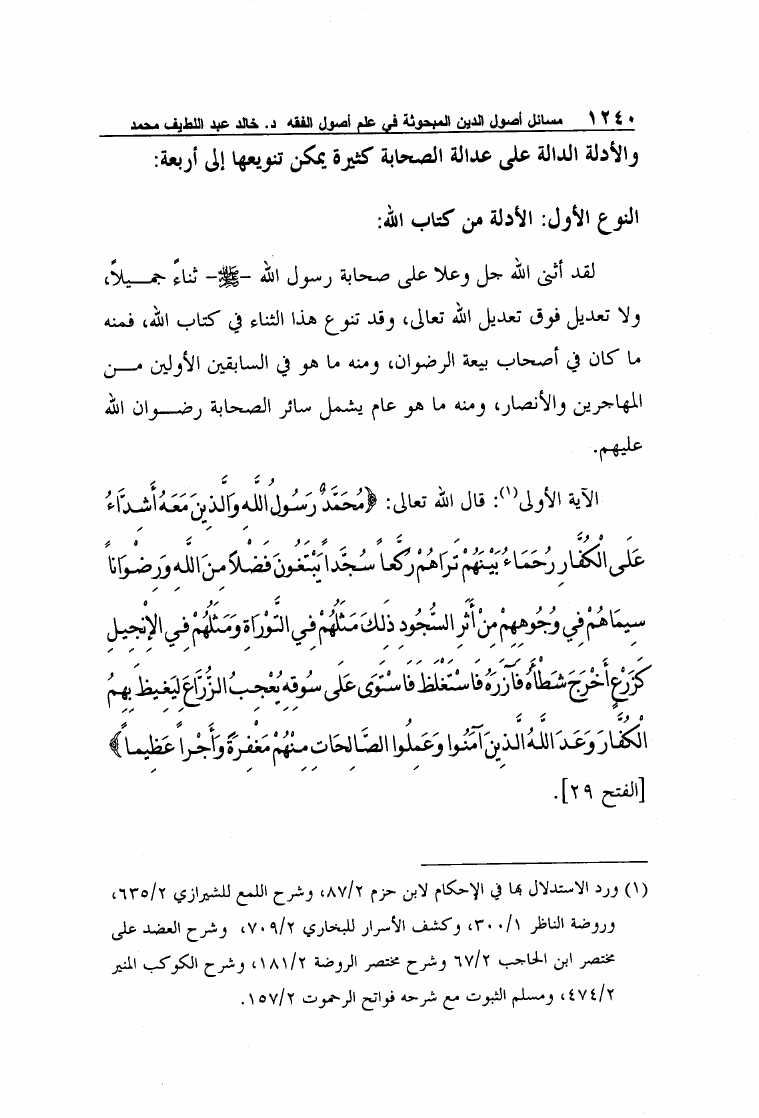 ١٢٤٠ مسائل أصول الدين المبحوثة في علم أصول الفقه د. خالد عبد اللطيف محمد
والأدلة الدالة على عدالة الصحابة كثيرة يمكن تنويعها إلى أربعة:
النوع الأول: الأدلة من كتاب الله:
لقد أثنى الله جل وعلا على صحابة رسول الله -ﷺ- ثناءً جمـيلاً،
ولا تعديل فوق تعديل الله تعالى، وقد تنوع هذا الثناء في كتاب الله، فمنه
ما كان في أصحاب بيعة الرضوان، ومنه ما هو في السابقين الأولين مـن
المهاجرين والأنصار، ومنه ما هو عام يشمل سائر الصحابة رضـوان الله
عليهم.
الآية الأولى(١): قال الله تعالى: ﴿مُحَمَّدٌ رَسُولُ اللَّهِ وَالَّذِينَ مَعَهُ أَشِدَّاءُ
عَلَى الْكُفَّارِ رُحَمَاءُ بَيْنَهُمْ تَرَاهُمْ رُكَّعاً سُجَّداً يَبْتَغُونَ فَضْلاً مِنَ اللَّهِ وَرِضْوَاناً
سِيمَاهُمْ فِي وُجُوهِهِمْ مِنْ أَثَرِ السُّجُودِ ذَلِكَ مَثَلُهُمْ فِي التَّوْرَاةِ وَمَثَلُهُمْ فِي الإِنْجِيلِ
كَزَرْعٍ أَخْرَجَ شَطْأَهُ فَآزَرَهُ فَاسْتَغْلَظَ فَاسْتَوَى عَلَى سُوقِهِ يُعْجِبُ الزُّرَّاعَ لِيَغِيظَ بِهِمُ
الْكُفَّارَ وَعَدَ اللَّهُ الَّذِينَ آمَنُوا وَعَمِلُوا الصَّالِحَاتِ مِنْهُمْ مَغْفِرَةً وَأَجْراً عَظِيماً﴾
[الفتح ٢٩].
(١) ورد الاستدلال بها في الإحكام لابن حزم ٨٧/٢، وشرح اللمع للشيرازي ٦٣٥/٢،
وروضة الناظر ٣٠٠/١، وكشف الأسرار للبخاري ٧٠٩/٢، وشرح العضد على
مختصر ابن الحاجب ٦٧/٢ وشرح مختصر الروضة ١٨١/٢، وشرح الكوكب المنير
٤٧٤/٢، ومسلم الثبوت مع شرحه فواتح الرحموت ١٥٧/٢.